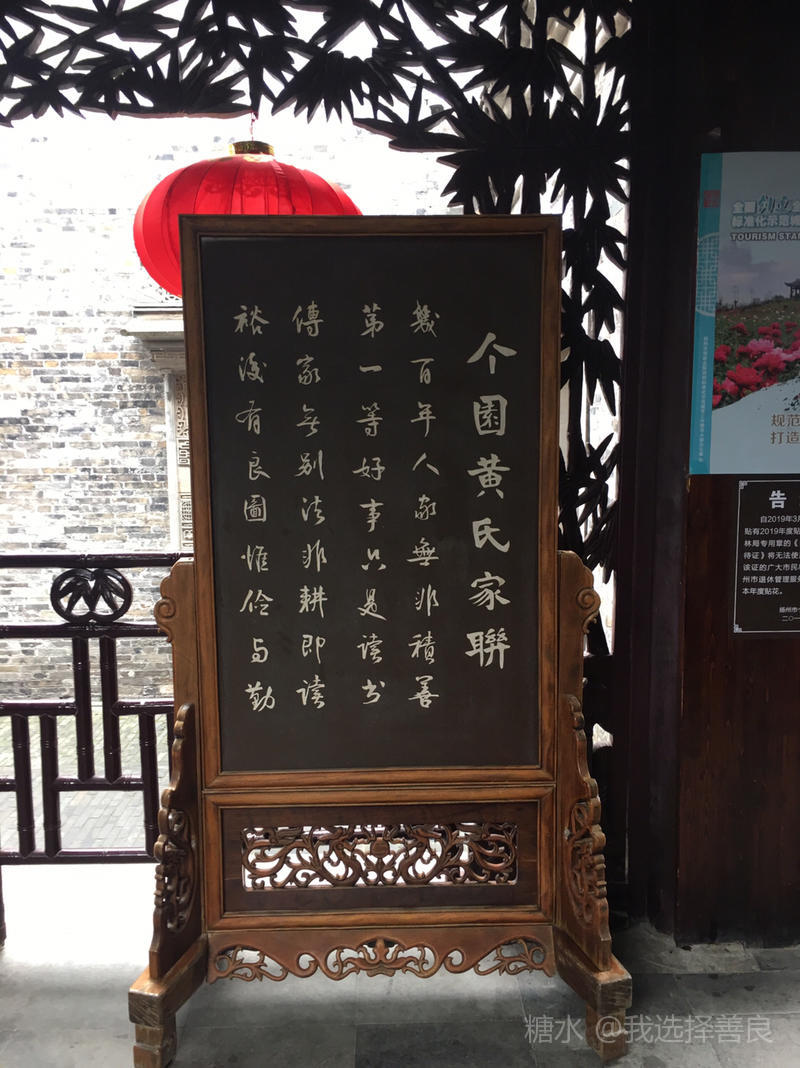 个園黄氏家聯
幾百年人家無非積善
第一等好事只是读书
傳家無别法非耕即读
裕後有良圖惟俭与勤
标准化示范
TOURISM STA
规范
打造
告
自2019年3月
贴有2019年度贴
林局专用章的《
待证》将无法使
该证的广大市民
州市退休管理服
本年度贴花。
扬州市
二〇一
糖水 @我选择善良